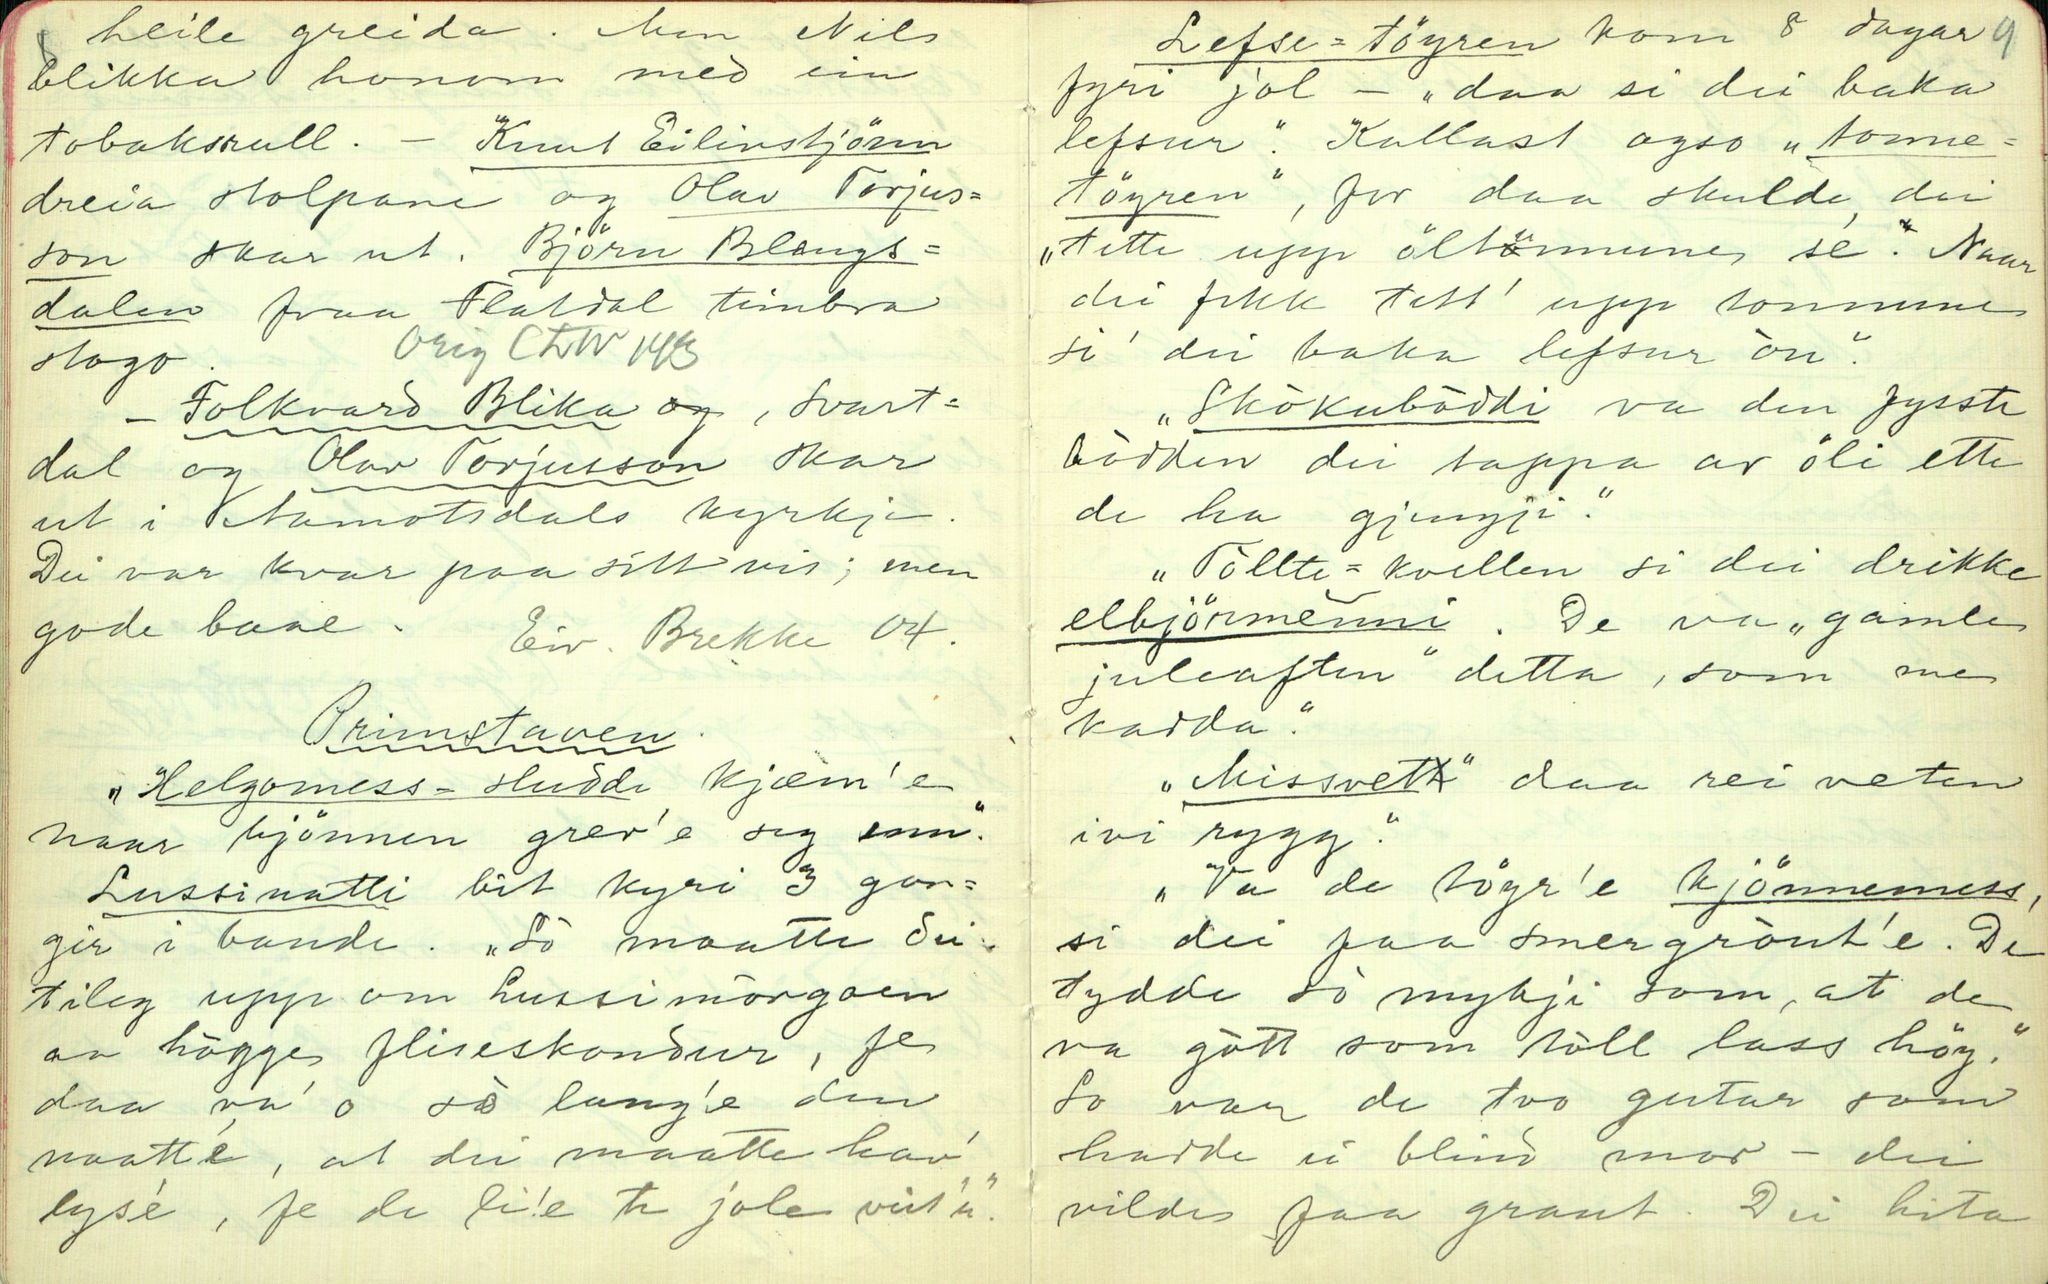 8
heile greida. Men Nils
blikka honom med ein
tobaksrull. – Knut Eilivstjönn
dreia stolpane og Olav Torjus=
son skar ut. Björn Blengs=
dalen fraa Flatdal timbra
stogo. Orig 143
– Folkvard Blika og, Svart=
dal og Olav Torjusson skar
ut i Aamotsdals kyrkje.
Dei var kvar paa sitt vis; men
gode baae. Eiv. Brekke 04.
Primstaven.
„Helgomess-sludde kjæm'e
naar bjönnen grev'e seg inn."
Lussinatti bit kyri 3 gon=
gir i bande. „So maatte dei
tileg upp om Lussimòrgoen
aa hògge fliseskondur, fe
daa va' o sò lang'e den
naatt'e, at dei maatte hav'
lys'e, fe de li'e te jole veit'u."
9
Lefse=töyren kom 8 dagar
fyri jol – „daa si dei baka
lefsur". Kallast ogso „tonne=
töyren", for daa skulde dei
„tette upp öltönnune sé". Naar
dei fekk tett' upp tonnune
si' dei baka lefsur òn".
„Skòkubòddi va den fysste
bòdden dei tappa av öli ette
de ha gjengji."
„Tòllte=kvellen si dei drikke
elbjörmenni. De va „gamle
juleaften" detta, som me
kadda".
„Missvett" daa rei veten
ivi rygg".
„Va de töyr'e bjönnemess,
si dei faa smergròut'e. De
tydde sò mykji som, at de
va gòtt som tòll lass höy."
So var de tvo gutar som
hadde ei blind mor – dei
vilde faa graut. Dei hita